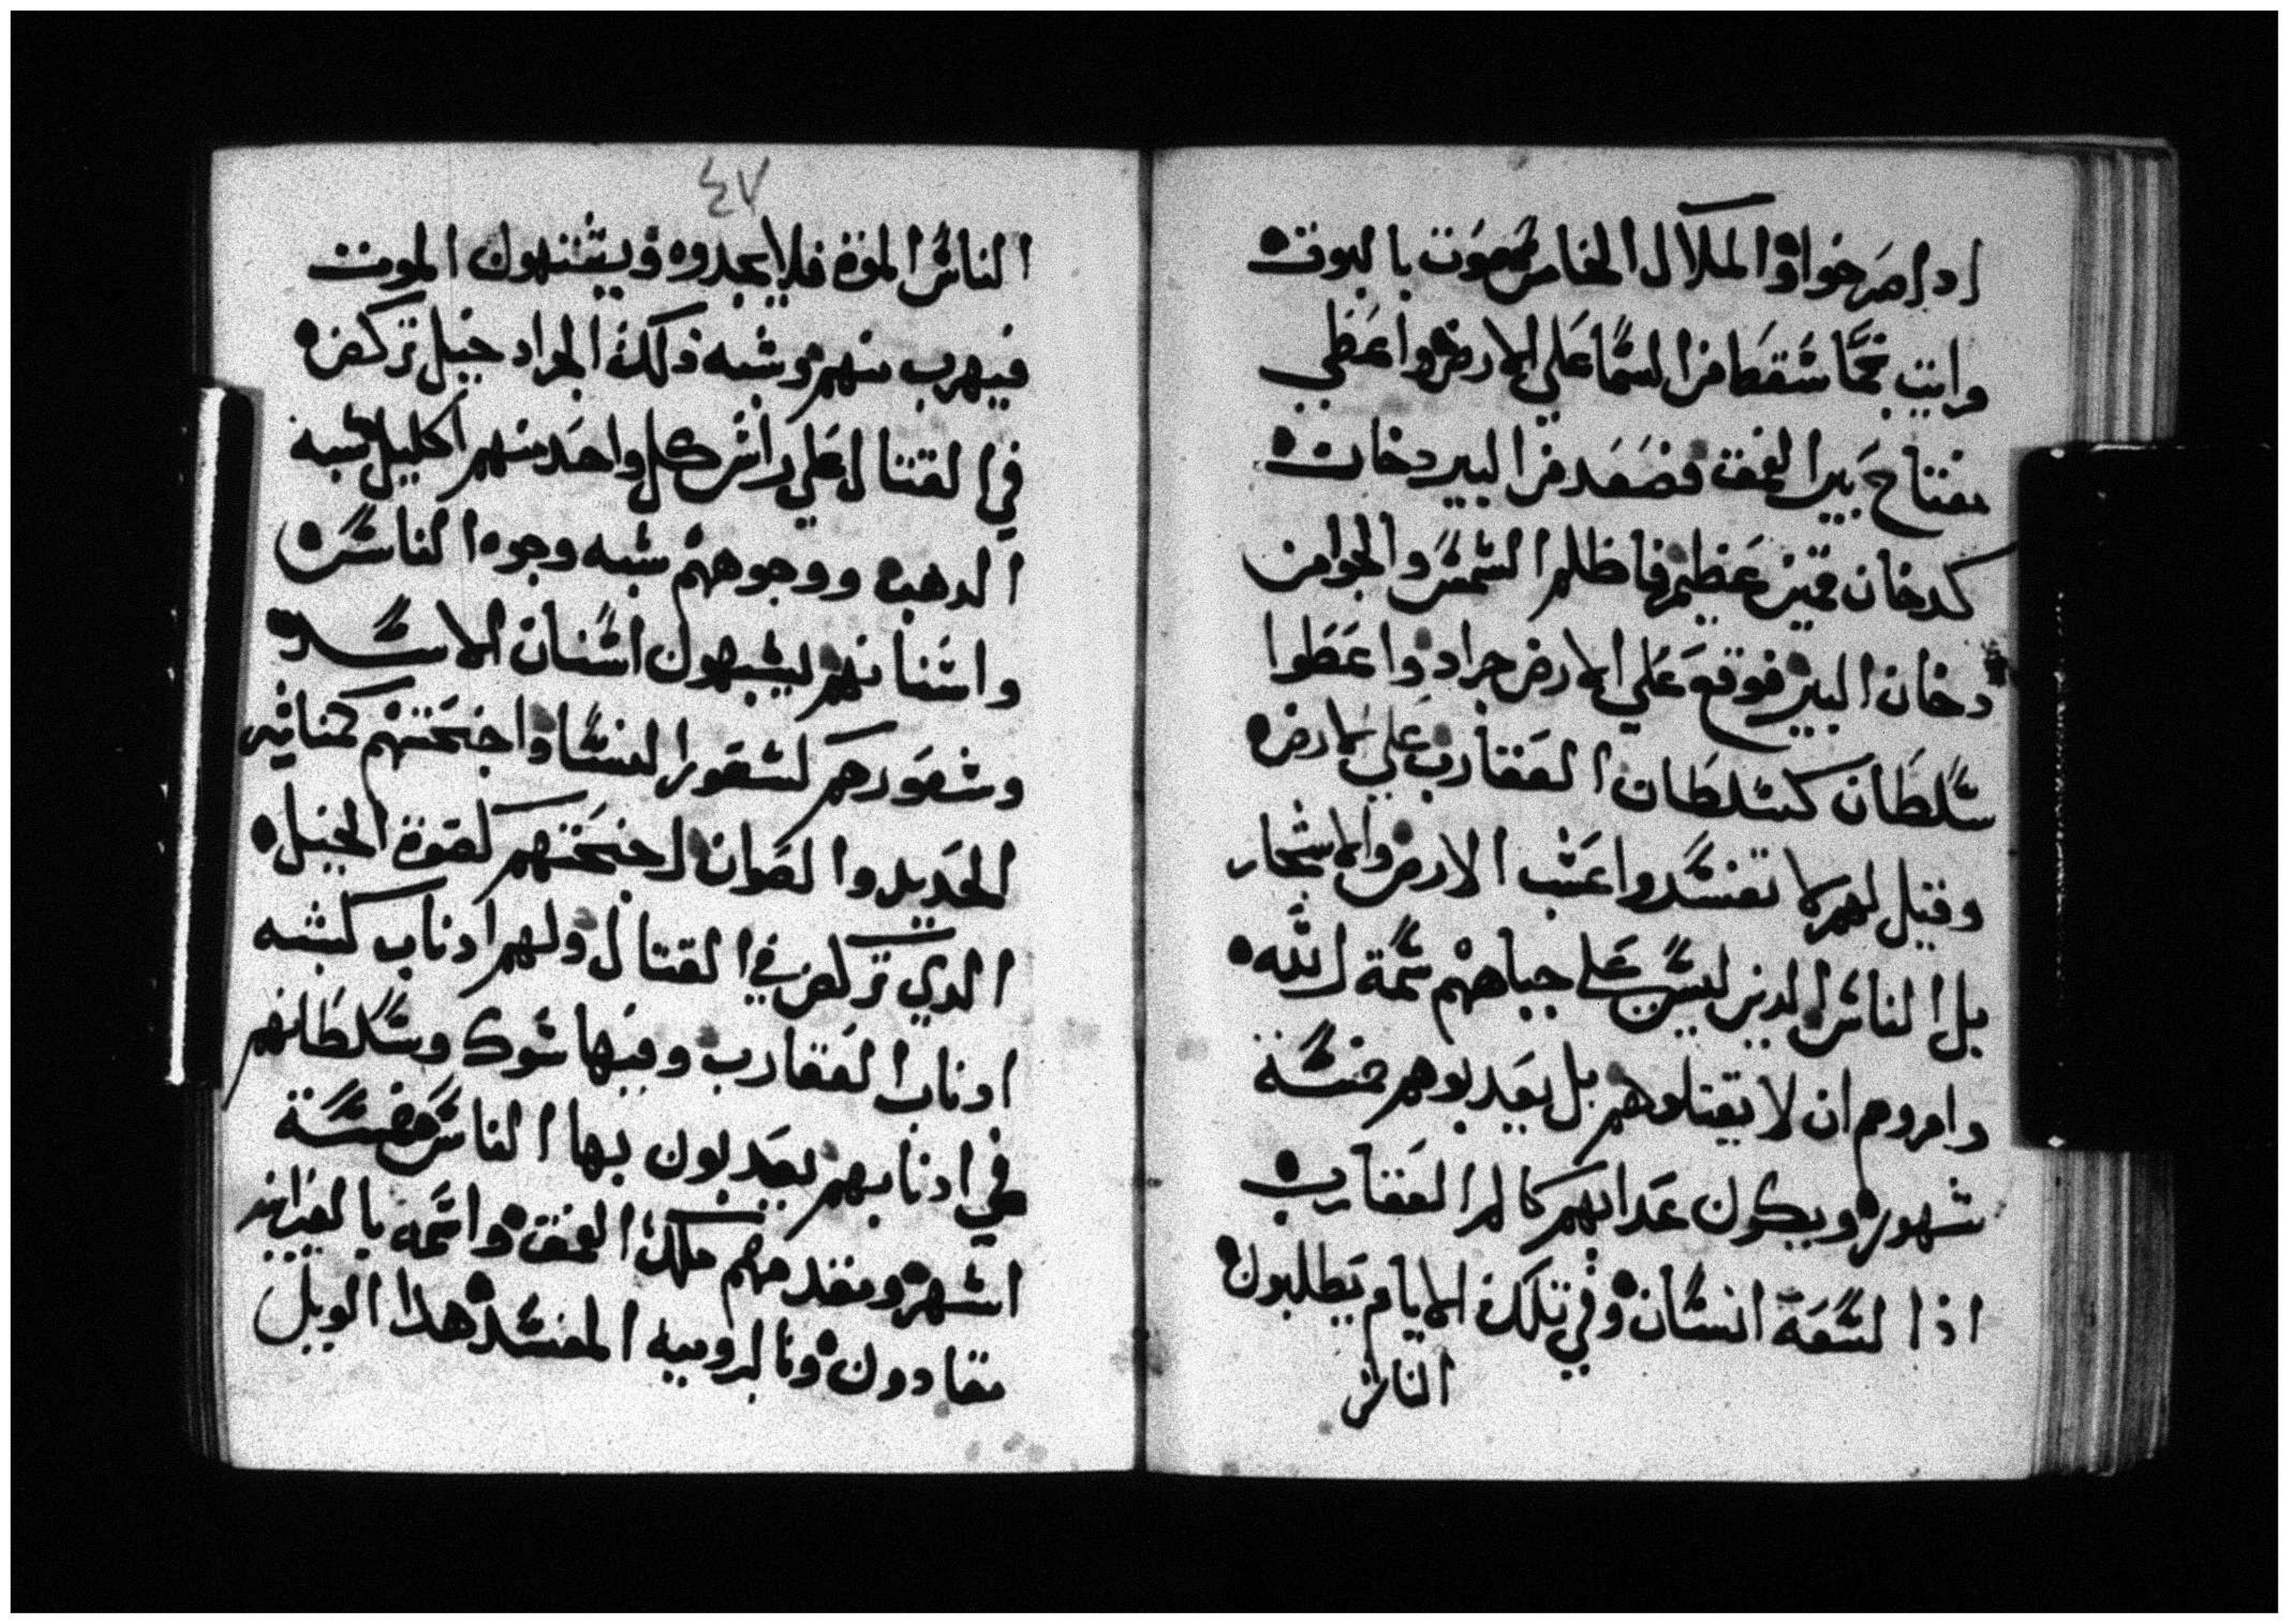 ادا صرخوا والملاك الخامس صوت بالبوق
ورايت نجما سقط من السما على الارض واعطي
مفتاح بير العمق فصعد من البير دخان
كدخان قمين عظيم فاظلم الشمس والجو من
دخان البير فوقع على الارض جراد واعطوا
سلطان كسلطان العقارب على الارض
وقيل لهم لا تفسدوا عشب الارض والاشجار
بل الناس الدين ليس على جباههم سمة الله
وامروهم ان لا يقتلوهم بل يعدبوهم خمسة
شهور ويكون عدابهم كالم العقارب
اذا لسعة انسان وفي تلك الايام يطلبون
الناس
٤٧
الناس الموة فلا يجدوه ويشتهون الموت
فيهرب منهم وشبه ذلك الجراد خيل تركض
في القتال على راس كل واحد منهم اكليل شبه
الدهب ووجوههم شبه وجوه الناس
واسنانهم يشبهون اسنان الاسد
وشعورهم كشعور النسا واجنحتهم
الحديد وا لاجنحتهم كقوة الخيل
الدي تركض في القتال ولهم ادناب كشبه
ادناب العقارب وفيها شوك وسلطانهم
في ادنابهم يعدبون بها الناس خمسة
اشهر ومقدمهم ملاك العمق واسمه بالعبرانيه
مقادون وبالروميه المفسد هدا الويل